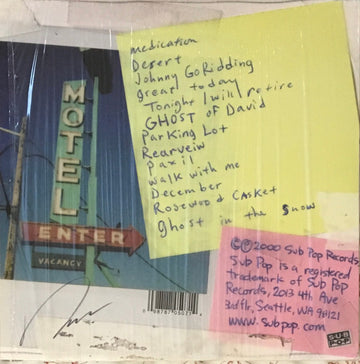 medication
Desert
Johnny GoRidding
great today
Tonight I will retire
GHOST of David
Parking Lot
Rearveiw
Paxil
walk with me
December
Rosewood Casket
Ghost in the Snow
MOTEL
ENTER
VACANCY
©℗ 2000 Sub Pop Records
Sub Pop is a registered
trademark of Sub Pop
Records, 2013 4th Ave
3rd flr, Seattle, WA 98121
www.subpop.com
SUB
POP